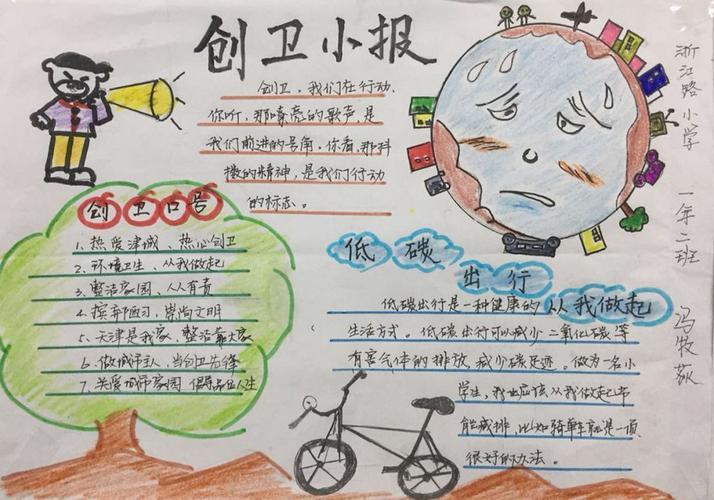 创卫小报
创卫，我们在行动，
你听，那嘹亮的歌声，是
我们前进的号角，你看，那抖
擞的精神，是我们行动
的标志。
创卫口号
1、热爱津城、热心创卫
2、环境卫生、从我做起
3、整治家园、人人有责
4、摈弃陋习、崇尚文明
5、天津是我家、整洁靠大家
6、做城市主人，当创卫先锋
7、关爱城市家园 倡导品位人生
低碳
出行
从我做起
低碳出行是一种健康的
生活方式。低碳出行可以减少二氧化碳等
有害气体的排放，减少碳足迹。做为一名小
学生，我也应该从我做起节
能减排，比如骑单车就是一项
很好的办法。
浙江路小学 一年二班 冯牧荻